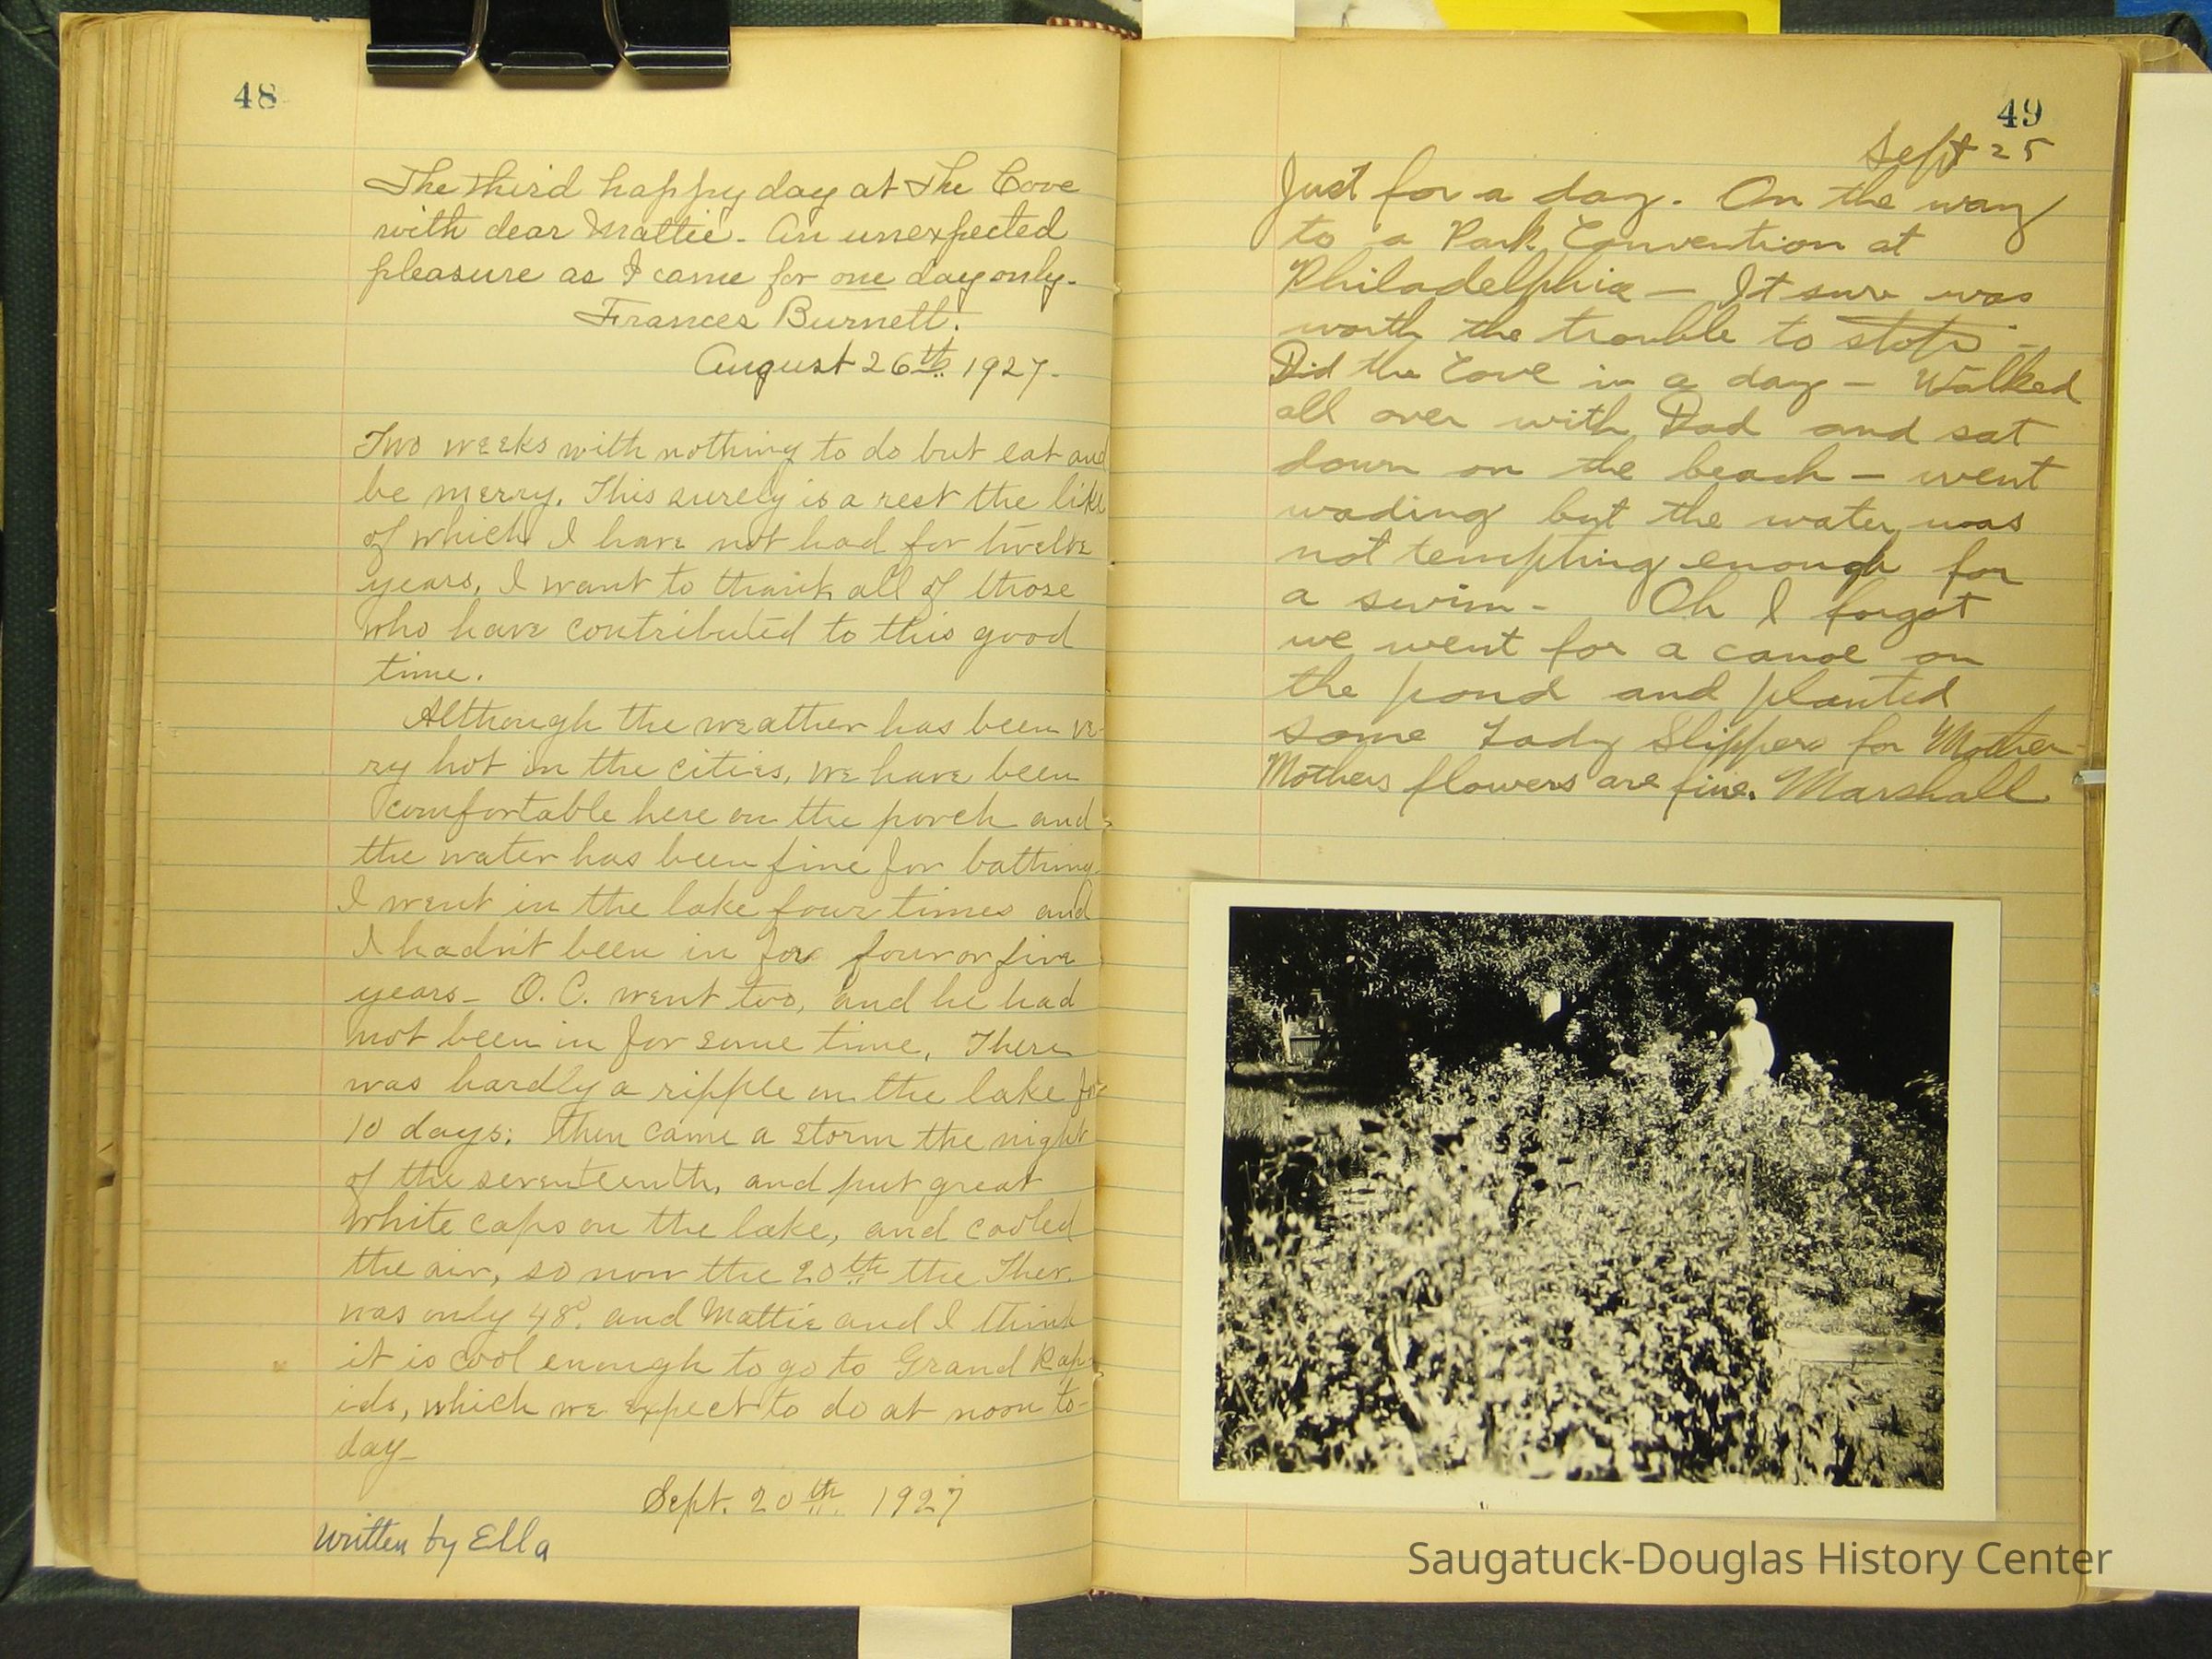 48
The third happy day at The Cove
with dear Mattie - An unexpected
pleasure as I came for one day only.
Frances Burnett.
August 26th 1927.
Two weeks with nothing to do but eat and
be merry. This surely is a rest the like
of which I have not had for twelve
years. I want to thank all of those
who have contributed to this good
time.
Although the weather has been ve-
ry hot in the cities, we have been
comfortable here on the porch and
the water has been fine for bathing.
I went in the lake four times and
I hadn't been in for four or five
years - O.C. went two, and he had
not been in for some time. There
was hardly a ripple on the lake for
10 days; then came a storm the night
of the seventeenth, and put great
white caps on the lake, and cooled
the air, so now the 20th the Ther.
was only 48° and Mattie and I think
it is cool enough to go to Grand Rap-
ids, which we expect to do at noon to-
day -
Sept. 20th 1927
Written by Ella
49
Sept 25
Just for a day. On the way
to a Park Convention at
Philadelphia - It sure was
worth the trouble to stop -
Did the Cove in a day - Walked
all over with Dad and sat
down on the beach - went
wading but the water was
not tempting enough for
a swim - Oh I forgot
we went for a canoe on
the pond and planted
some Lady Slippers for Mother
Mothers flowers are fine. Marshall
Saugatuck-Douglas History Center